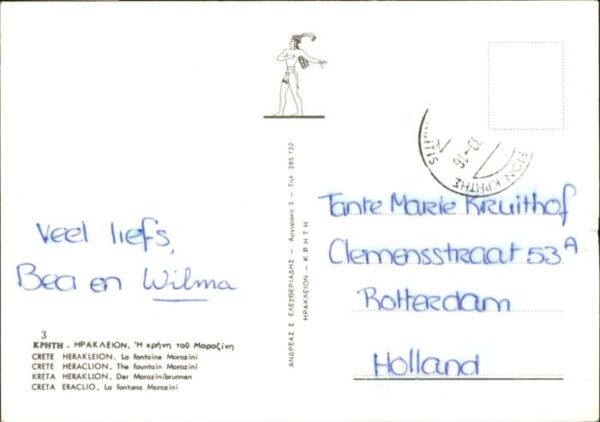 Veel liefs,
Bea en Wilma
3
ΚΡΗΤΗ - ΗΡΑΚΛΕΙΟΝ. Ἡ κρήνη τοῦ Μοροζίνη
CRETE HERAKLEION. La fontaine Morozini
CRETE HERACLION. The fountain Morozini
KRETA HERAKLION. Der Morozinibrunnen
CRETA ERACLIO. La fontana Morozini
ΑΝΔΡΕΑΣ Σ ΕΛΕΥΘΕΡΙΑΔΗΣ - Αργυράκη 3 - Τηλ 285 732
ΗΡΑΚΛΕΙΟΝ - ΚΡΗΤΗ
ΕΙΟΝ ΚΡΗΤΗΣ
Tante Marie Kruithof
Clemensstraat 53A
Rotterdam
Holland